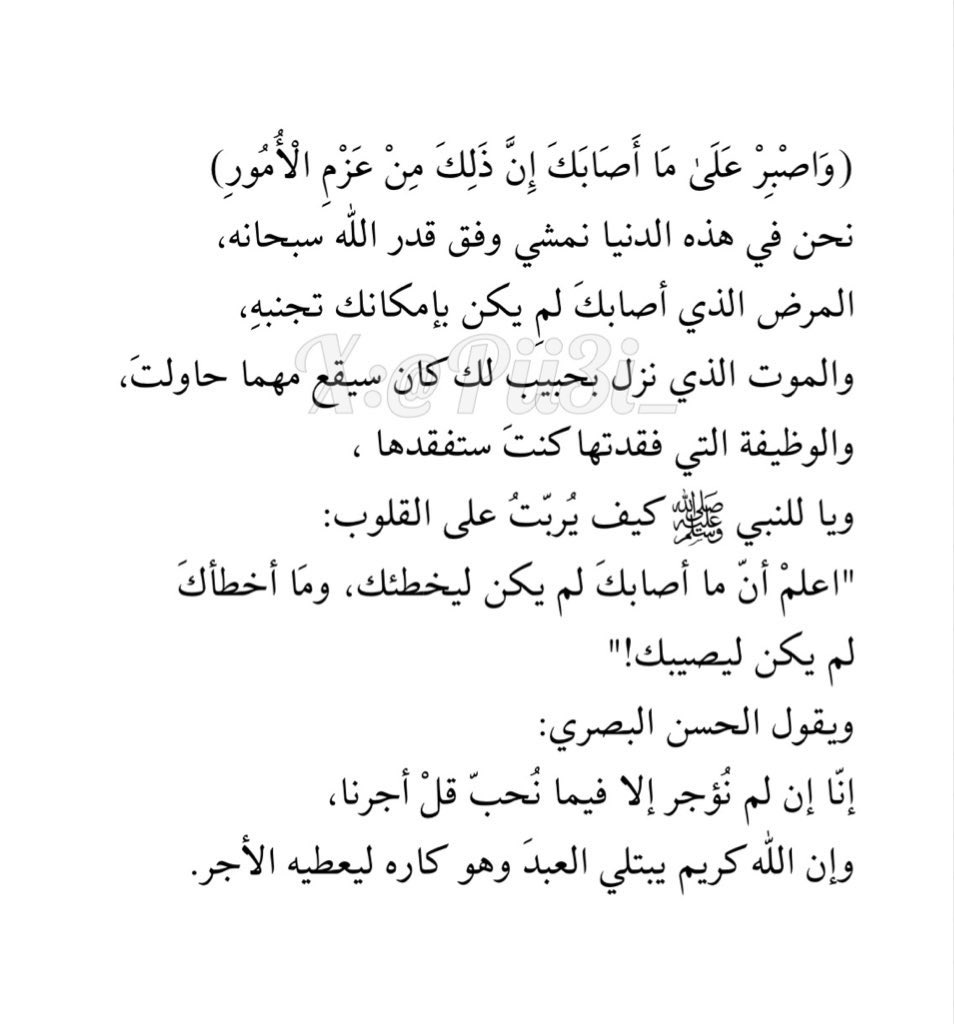 (وَاصْبِرْ عَلَىٰ مَا أَصَابَكَ إِنَّ ذَلِكَ مِنْ عَزْمِ الْأُمُورِ)
نحن في هذه الدنيا نمشي وفق قدر الله سبحانه،
المرض الذي أصابكَ لمِ يكن بإمكانك تجنبهِ،
X:@Pii3i_
والموت الذي نزل بحبيب لك كان سيقع مهما حاولتَ،
والوظيفة التي فقدتها كنتَ ستفقدها ،
ويا للنبي ﷺ كيف يُربّتُ على القلوب:
"اعلمْ أنّ ما أصابكَ لم يكن ليخطئك، ومَا أخطأكَ
لم يكن ليصيبك!"
ويقول الحسن البصري:
إنّا إن لم نُؤجر إلا فيما نُحبّ قلْ أجرنا،
وإن الله كريم يبتلي العبدَ وهو كاره ليعطيه الأجر.